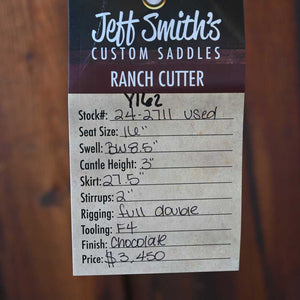 Jeff Smith's
CUSTOM SADDLES
RANCH CUTTER
Y162
Stock#: 24-2711 used
Seat Size: 16"
Swell: BW 8.5"
Cantle Height: 3"
Skirt: 27.5"
Stirrups: 2"
Rigging: full double
Tooling: E4
Finish: Chocolate
Price: $3,450